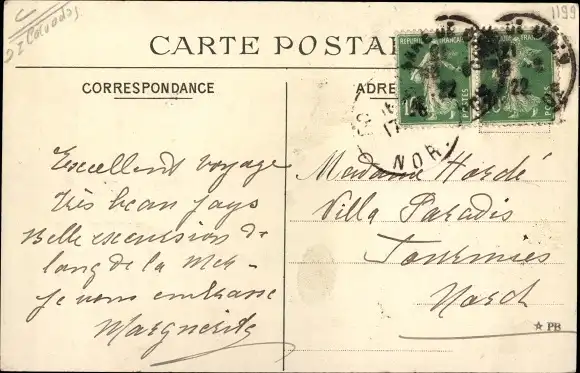 1199
Calvados
CARTE POSTA
CORRESPONDANCE
ADRE
REPUBLIQUE FRANÇAISE
POSTES
22
22
NOR
Excellent voyage
très beau pays
Belle excursion de
long de la Mer -
je vous embrasse
Marguerite
Madame Hordé
Villa Paradis
Fourmies
Nord
☆ PB